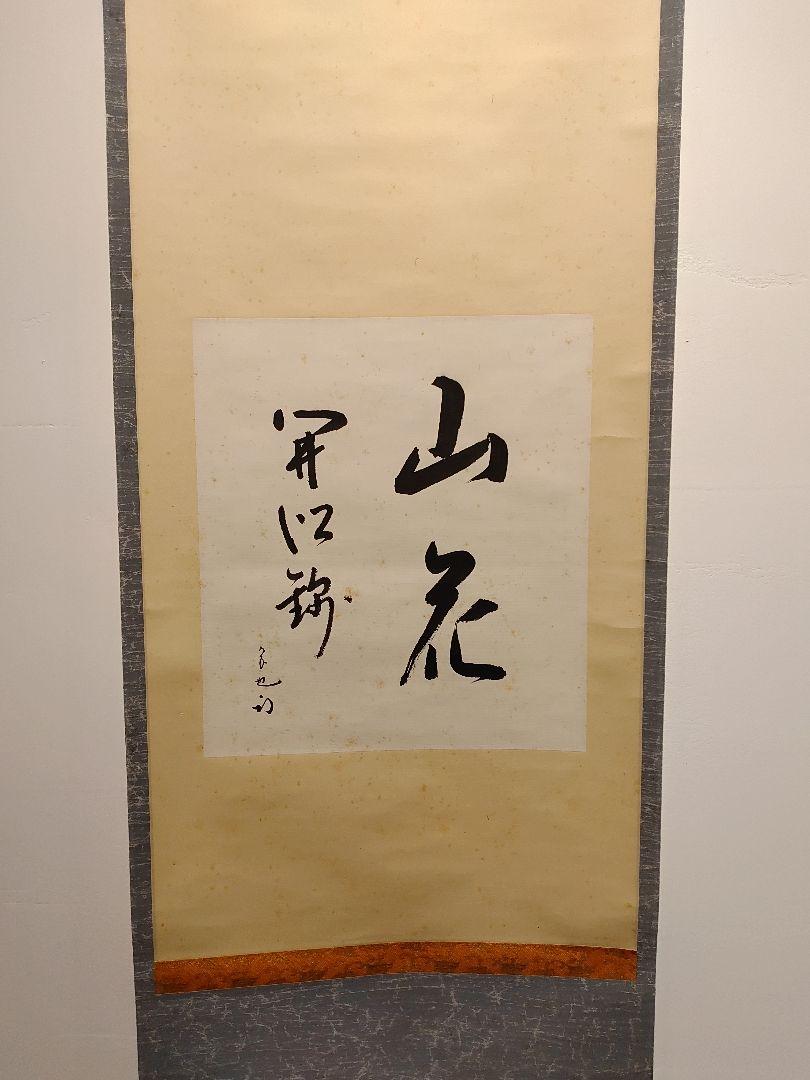 山花
開似錦